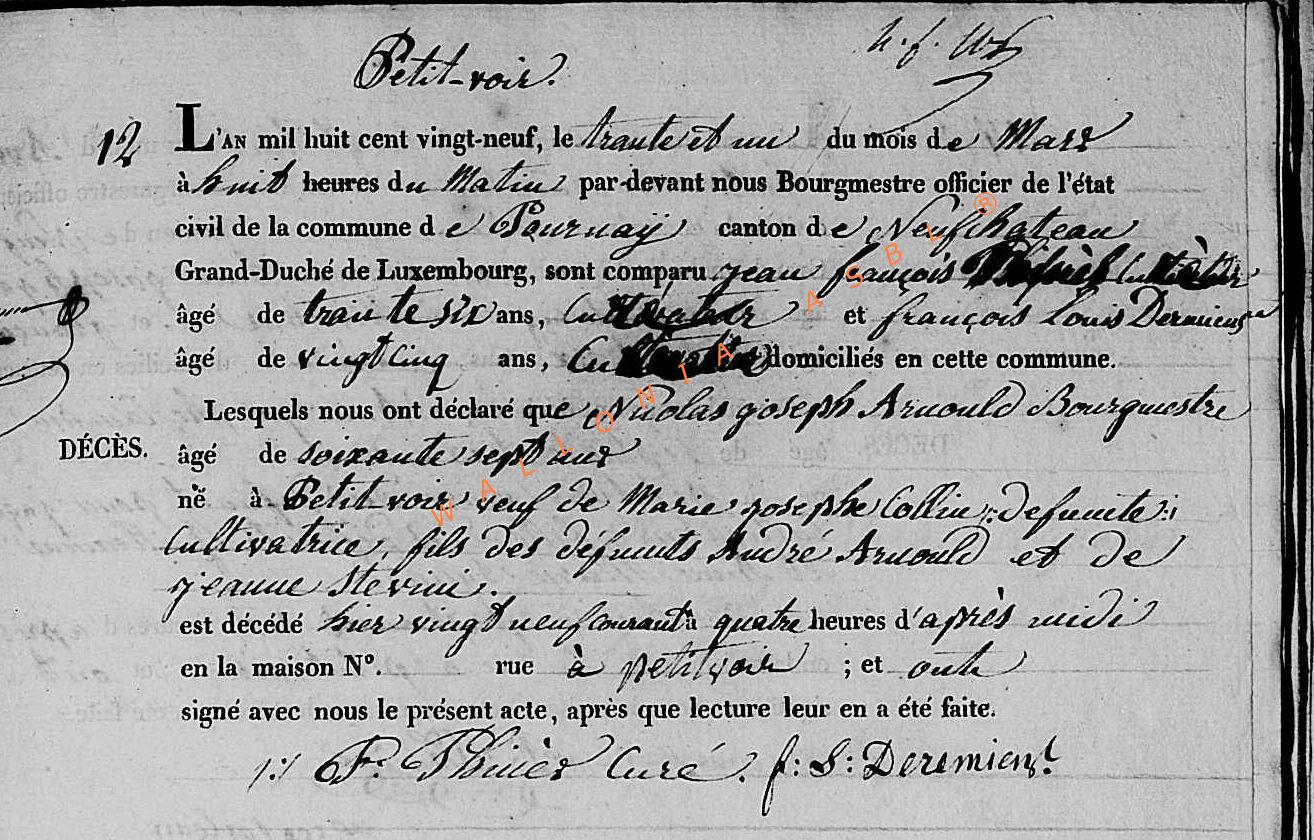 Petit-voir.
12
L'AN mil huit cent vingt-neuf, le traute et un du mois de Mars
à huit heures du Matin par-devant nous Bourgmestre officier de l'état
civil de la commune de Tournaÿ canton de Neufchateau
Grand-Duché de Luxembourg, sont comparu jean françois
âgé de traute six ans, Cultivateur et françois Louis Deremiens
âgé de vingt cinq ans, domiciliés en cette commune.
Lesquels nous ont déclaré que Nicolas joseph Arnould Bourgmestre
DÉCÈS.
âgé de soixante sept ans
né à Petit voir veuf de Marie josephe Collin :defunte:
Cultivatrice, fils des défunts André Arnould et de
jeanne Stevini.
est décédé hier vingt neuf courant à quatre heures d'après midi
en la maison N°. rue à petitvoir ; et ont
signé avec nous le présent acte, après que lecture leur en a été faite.
Curé. f: L: Deremiens.
WALLONIA ASBL ®